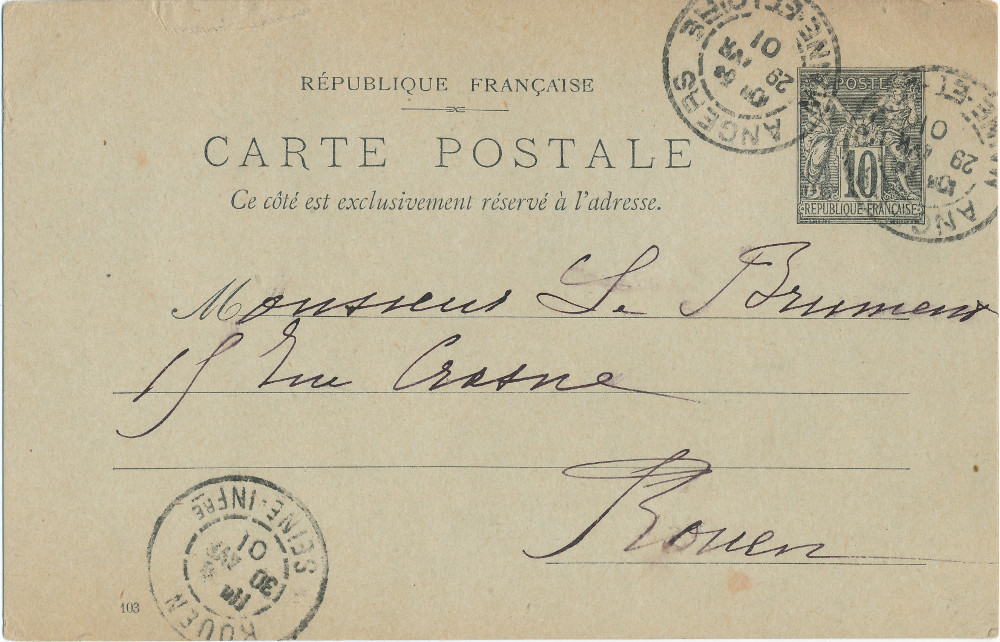 RÉPUBLIQUE FRANÇAISE
CARTE POSTALE
Ce côté est exclusivement réservé à l'adresse.
POSTE
10
RÉPUBLIQUE FRANÇAISE
ANGERS
MAINE-ET-LOIRE
29 AVR
01
ANG
MAINE-ET-
29
01
Monsieur Le Brument
15 Rue Crosne
Rouen
ROUEN
SEINE-INFRE
30
01
103